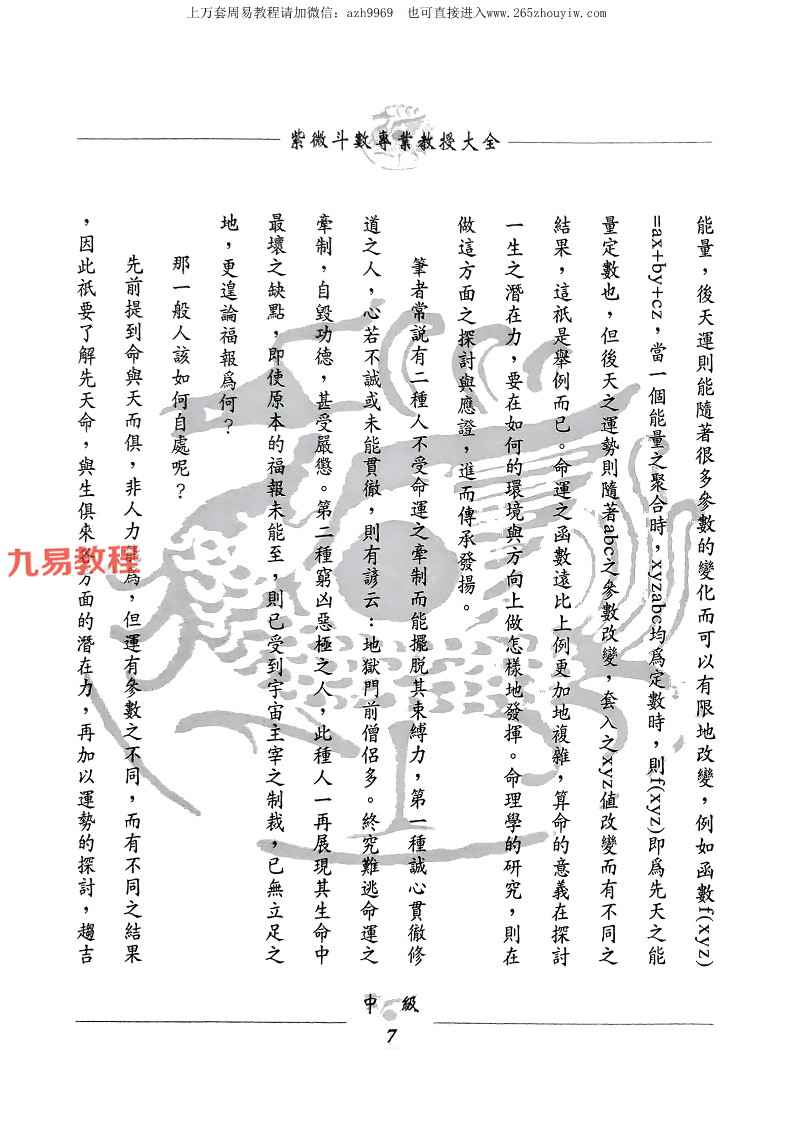 上万套周易教程请加微信：azh9969　也可直接进入www.265zhouyiw.com
紫微斗數專業教授大全
能量，後天運則能隨著很多參數的變化而可以有限地改變，例如函數f(xyz)
=ax+by+cz，當一個能量之聚合時，xyzabc均爲定數時，則f(xyz)即爲先天之能
量定數也，但後天之運勢則隨著abc之參數改變，套入之xyz值改變而有不同之
結果，這祇是舉例而已。命運之函數遠比上例更加地複雜，算命的意義在探討
一生之潛在力，要在如何的環境與方向上做怎樣地發揮。命理學的研究，則在
做這方面之探討與應證，進而傳承發揚。
筆者常説有二種人不受命運之牽制而能擺脱其束縛力，第一種誠心貫徹修
道之人，心若不誠或未能貫徹，則有諺云：地獄門前僧侶多。終究難逃命運之
牽制，自毀功德，甚受嚴懲。第二種窮凶惡極之人，此種人一再展現其生命中
最壞之缺點，即使原本的福報未能至，則已受到宇宙主宰之制裁，已無立足之
地，更遑論福報爲何？
那一般人該如何自處呢？
先前提到命與天而俱，非人力爲，但運有參數之不同，而有不同之結果
，因此祇要了解先天命，與生俱來方面的潛在力，再加以運勢的探討，趨吉
九易教程
中級
7